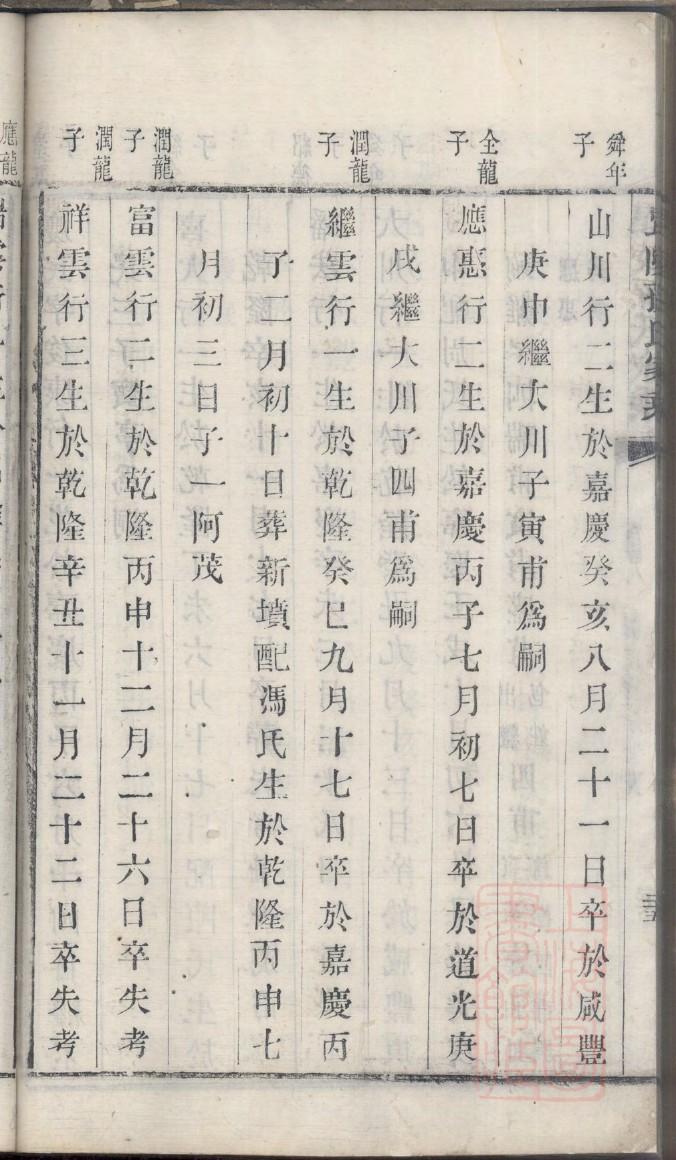 舜年子
山川行二生於嘉慶癸亥八月二十一日卒於咸豐
庚申繼大川子寅甫爲嗣
全龍子
應惠行二生於嘉慶丙子七月初七日卒於道光庚
戌繼大川子四甫爲嗣
潤龍子
繼雲行一生於乾隆癸巳九月十七日卒於嘉慶丙
子二月初十日葬新墳配馮氏生於乾隆丙申七
月初三日子一阿茂
潤龍子
富雲行二生於乾隆丙申十二月二十六日卒失考
潤龍子
祥雲行三生於乾隆辛丑十一月二十二日卒失考
應龍